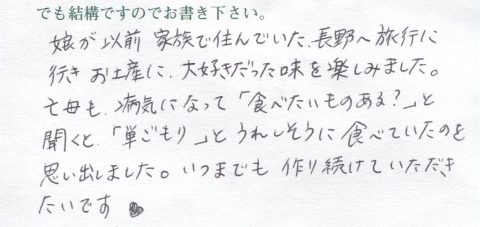 でも結構ですのでお書き下さい。
娘が以前 家族で住んでいた、長野へ旅行に
行き お土産に、大好きだった味を楽しみました。
亡母も、病気になって「食べたいものある?」と
聞くと、「巣ごもり」とうれしそうに食べていたのを
思い出しました。いつまでも 作り続けていただき
たいです♥